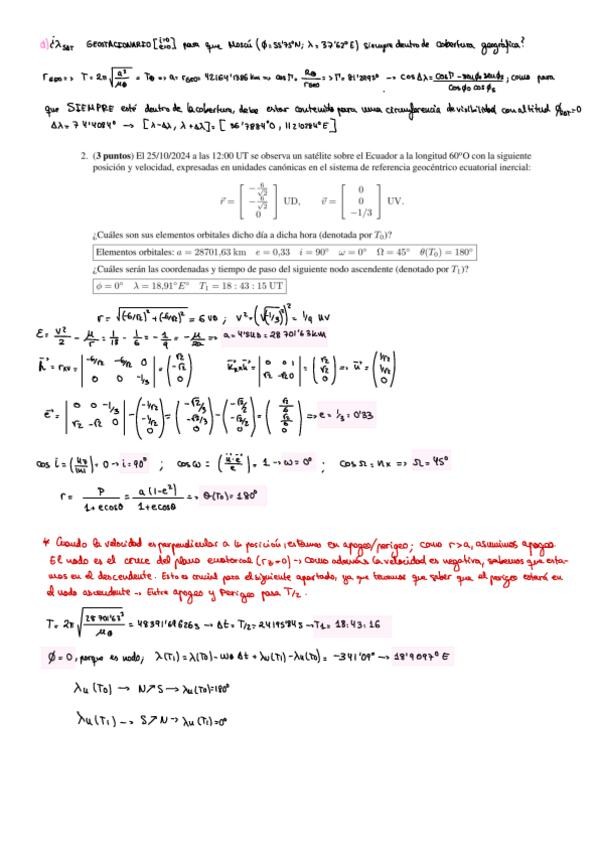 d) ¿λSAT GEOSTACIONARIO [i=0 e=0] para que Moscú (ϕ=55'75°N; λ=37'62°E) siempre dentro de cobertura geográfica?
rGEO => T=2π√(a³/μ⊕) = T⊕ => a=rGEO= 42164'1386 km => cos Γ = R⊕/rGEO => Γ=81'2993° → cos Δλ = (cos Γ - sen ϕ0 sen ϕs)/(cos ϕ0 cos ϕs); como para
que SIEMPRE esté dentro de la cobertura, debe estar contenido para una circunferencia de visibilidad con altitud ϕSAT=0
Δλ= 74'4084° → [λ-Δλ, λ+Δλ] = [36'7884°O, 112'0284°E]
2. (3 puntos) El 25/10/2024 a las 12:00 UT se observa un satélite sobre el Ecuador a la longitud 60°O con la siguiente
posición y velocidad, expresadas en unidades canónicas en el sistema de referencia geocéntrico ecuatorial inercial:
r⃗ = [-6/√2, -6/√2, 0] UD, v⃗ = [0, 0, -1/3] UV.
¿Cuáles son sus elementos orbitales dicho día a dicha hora (denotada por T0)?
Elementos orbitales: a = 28701,63 km e = 0,33 i = 90° ω = 0° Ω = 45° θ(T0) = 180°
¿Cuáles serán las coordenadas y tiempo de paso del siguiente nodo ascendente (denotado por T1)?
ϕ = 0° λ = 18,91°E T1 = 18 : 43 : 15 UT
r = √((-6/√2)²+(-6/√2)²) = 6 UD ; v² = (√(-1/3)²)² = 1/9 UV
ε = v²/2 - μ/r = 1/18 - 1/6 = -1/9 = -μ/2a => a=4'5UD = 28701'63km
h⃗ = r×v = |-6/√2 -6/√2 0 / 0 0 -1/3| = (√2, -√2, 0) k⃗×h⃗ = |0 0 1 / √2 -√2 0| = (√2, √2, 0) => u⃗ = (1/√2, 1/√2, 0)
e⃗ = |0 0 -1/3 / √2 -√2 0| - (-1/√2, -1/√2, 0) = (-√2/3, -√2/3, 0) - (-√2/2, -√2/2, 0) = (√2/6, √2/6, 0) => e = 1/3 = 0'33
cos i = (hz/|h|) = 0 → i=90° ; cos ω = (u⃗·e⃗/e) = 1 → ω=0° ; cos Ω = nx => Ω = 45°
r = p/(1+e cosθ) = a(1-e²)/(1+e cosθ) => θ(T0) = 180°
* Cuando la velocidad es perpendicular a la posición, estamos en apogeo/perigeo; como r>a, asumimos apogeo.
El nodo es el cruce del plano ecuatorial (rz=0) → Como además la velocidad es negativa, sabemos que esta-
mos en el descendente. Esto es crucial para el siguiente apartado, ya que tenemos que saber que el perigeo estará en
el nodo ascendente → Entre apogeo y Perigeo pasa T/2.
T= 2π√(28701'63³/μ⊕) = 48391'696263 → Δt = T/2 = 24195'845 → T1 = 18:43:16
ϕ=0, porque es nodo; λ(T1) = λ(T0) - ω⊕ Δt + λu(T1) - λu(T0) = -341'09° → 18'9097°E
λu (T0) → N↗S → λu(T0)=180°
λu (T1) → S↗N → λu(T1)=0°